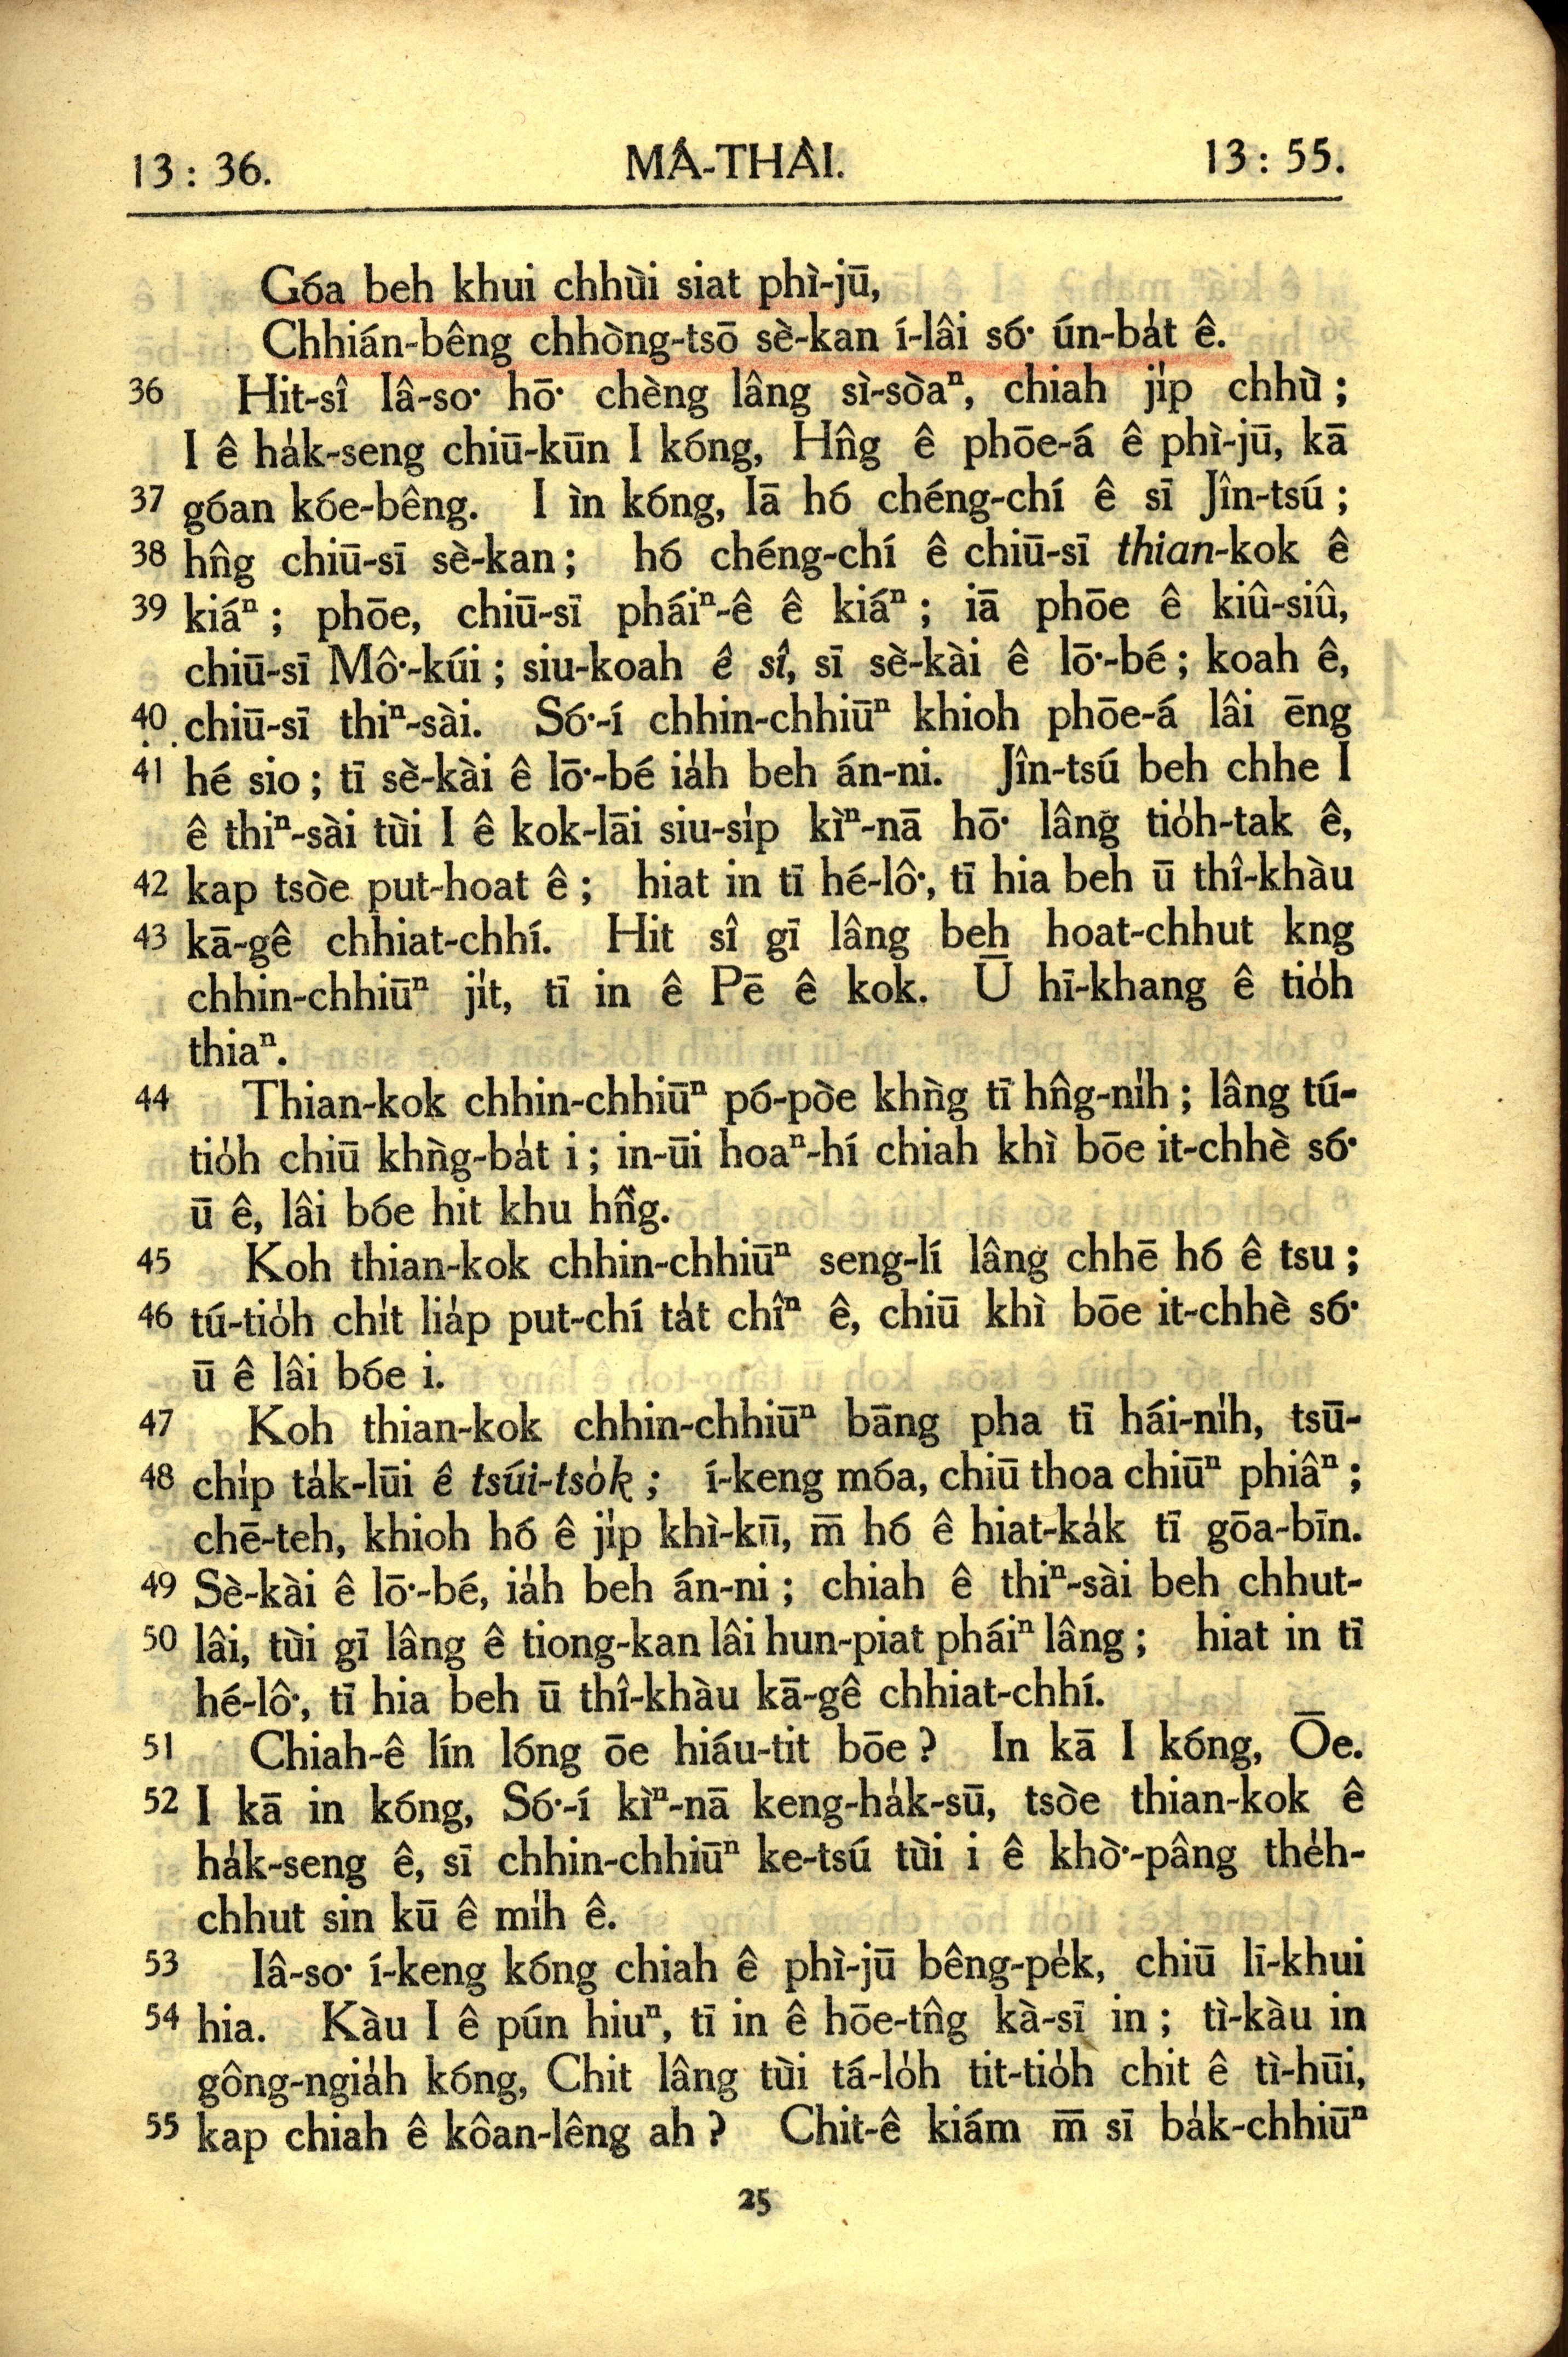 13 : 36.
MÂ-THÂI.
13 : 55.
Góa beh khui chhùi siat phì-jū,
Chhián-bêng chhòng-tsō sè-kan í-lâi só͘ ún-ba̍t ê.
36 Hit-sî Iâ-so͘ hō͘ chèng lâng sì-sòaⁿ, chiah ji̍p chhù ;
I ê ha̍k-seng chiū-kūn I kóng, Hn̂g ê phōe-á ê phì-jū, kā
37 góan kóe-bêng. I ìn kóng, Iā hó chéng-chí ê sī Jîn-tsú ;
38 hn̂g chiū-sī sè-kan ; hó chéng-chí ê chiū-sī thian-kok ê
39 kiáⁿ ; phōe, chiū-sī pháiⁿ-ê ê kiáⁿ ; iā phōe ê kiû-siû,
chiū-sī Mô͘-kúi ; siu-koah ê sî, sī sè-kài ê lō͘-bé ; koah ê,
40 chiū-sī thiⁿ-sài. Só͘-í chhin-chhiūⁿ khioh phōe-á lâi ēng
41 hé sio ; tī sè-kài ê lō͘-bé ia̍h beh án-ni. Jîn-tsú beh chhe I
ê thiⁿ-sài tùi I ê kok-lāi siu-si̍p kìⁿ-nā hō͘ lâng tio̍h-tak ê,
42 kap tsòe put-hoat ê ; hiat in tī hé-lô͘, tī hia beh ū thî-khàu
43 kā-gê chhiat-chhí. Hit sî gī lâng beh hoat-chhut kng
chhin-chhiūⁿ ji̍t, tī in ê Pē ê kok. Ū hī-khang ê tio̍h
thiaⁿ.
44 Thian-kok chhin-chhiūⁿ pó-pòe khǹg tī hn̂g-ni̍h ; lâng tú-
tio̍h chiū khǹg-ba̍t i ; in-ūi hoaⁿ-hí chiah khì bōe it-chhè só͘
ū ê, lâi bóe hit khu hn̂g.
45 Koh thian-kok chhin-chhiūⁿ seng-lí lâng chhē hó ê tsu ;
46 tú-tio̍h chi̍t lia̍p put-chí ta̍t chîⁿ ê, chiū khì bōe it-chhè só͘
ū ê lâi bóe i.
47 Koh thian-kok chhin-chhiūⁿ bāng pha tī hái-ni̍h, tsū-
48 chi̍p ta̍k-lūi ê tsúi-tso̍k ; í-keng móa, chiū thoa chiūⁿ phiâⁿ ;
chē-teh, khioh hó ê ji̍p khì-kū, m̄ hó ê hiat-ka̍k tī gōa-bīn.
49 Sè-kài ê lō͘-bé, ia̍h beh án-ni ; chiah ê thiⁿ-sài beh chhut-
50 lâi, tùi gī lâng ê tiong-kan lâi hun-piat pháiⁿ lâng ; hiat in tī
hé-lô͘, tī hia beh ū thî-khàu kā-gê chhiat-chhí.
51 Chiah-ê lín lóng ōe hiáu-tit bōe ? In kā I kóng, Ōe.
52 I kā in kóng, Só͘-í kìⁿ-nā keng-ha̍k-sū, tsòe thian-kok ê
ha̍k-seng ê, sī chhin-chhiūⁿ ke-tsú tùi i ê khò͘-pâng the̍h-
chhut sin kū ê mi̍h ê.
53 Iâ-so͘ í-keng kóng chiah ê phì-jū bêng-pe̍k, chiū lī-khui
54 hia. Kàu I ê pún hiuⁿ, tī in ê hōe-tn̂g kà-sī in ; tì-kàu in
gông-ngia̍h kóng, Chit lâng tùi tá-lo̍h tit-tio̍h chit ê tì-hūi,
55 kap chiah ê kôan-lêng ah ? Chit-ê kiám m̄ sī ba̍k-chhiūⁿ
25